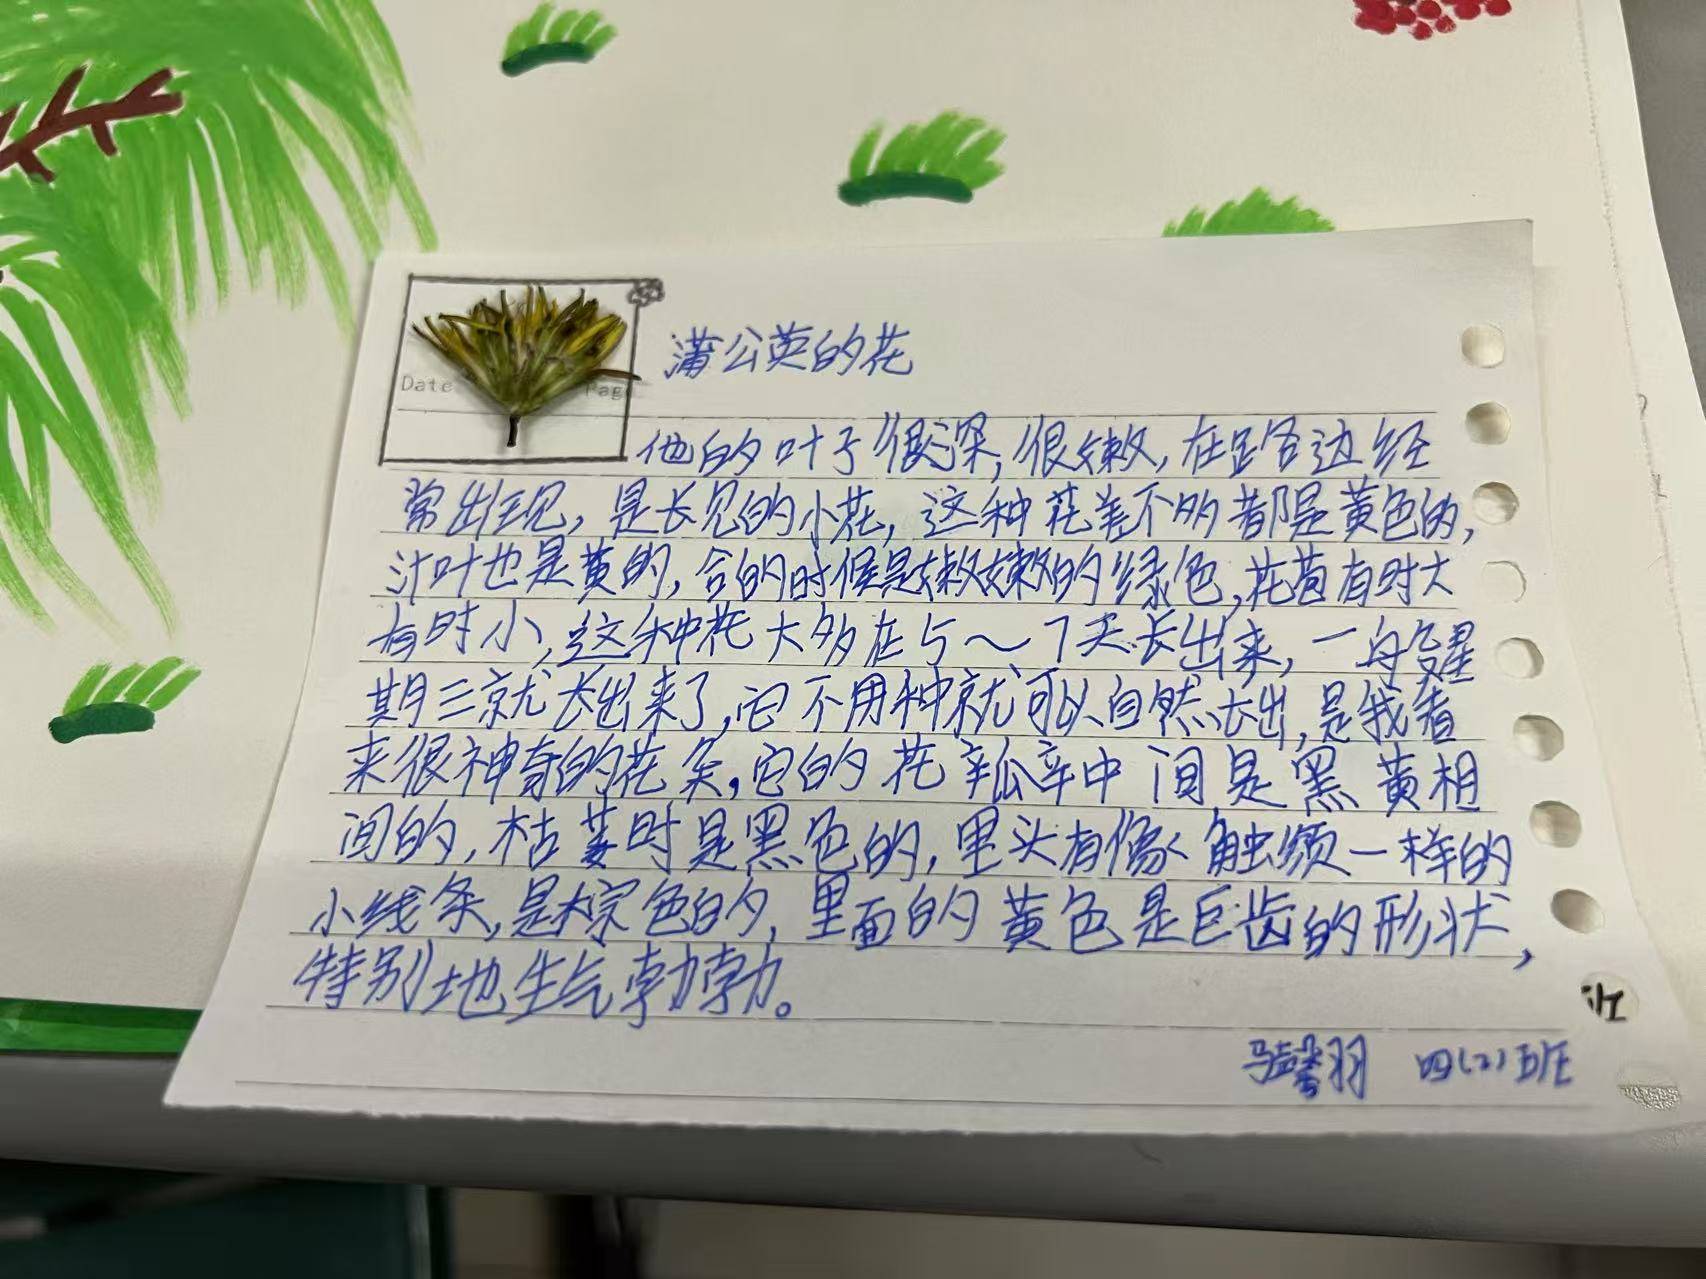 Date Page
蒲公英的花
他的叶子很深,很嫩,在路边经
常出现,是长见的小花,这种花差不多都是黄色的,
汁叶也是黄的,合的时候是嫩嫩的绿色,花苞有时大
有时小,这种花大多在5～7天长出来,一般星
期三就长出来了,它不用种就可以自然长出,是我看
来很神奇的花朵,它的花瓣中间是黑黄相
间的,枯萎时是黑色的,里头有像触须一样的
小线条,是棕色的,里面的黄色是巨齿的形状,
特别地生气勃勃。
骆馨羽 四(2)班